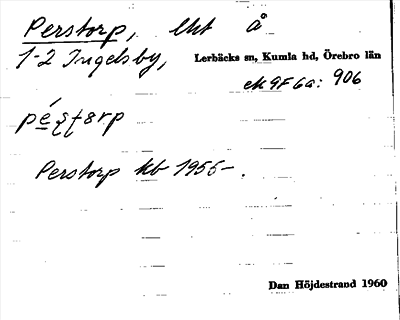 Perstorp, lht å
1-2 Ingelsby, Lerbäcks sn, Kumla hd, Örebro län
ek 9F 6a: 906
Perstorp kb 1955-.
Dan Höjdestrand 1960